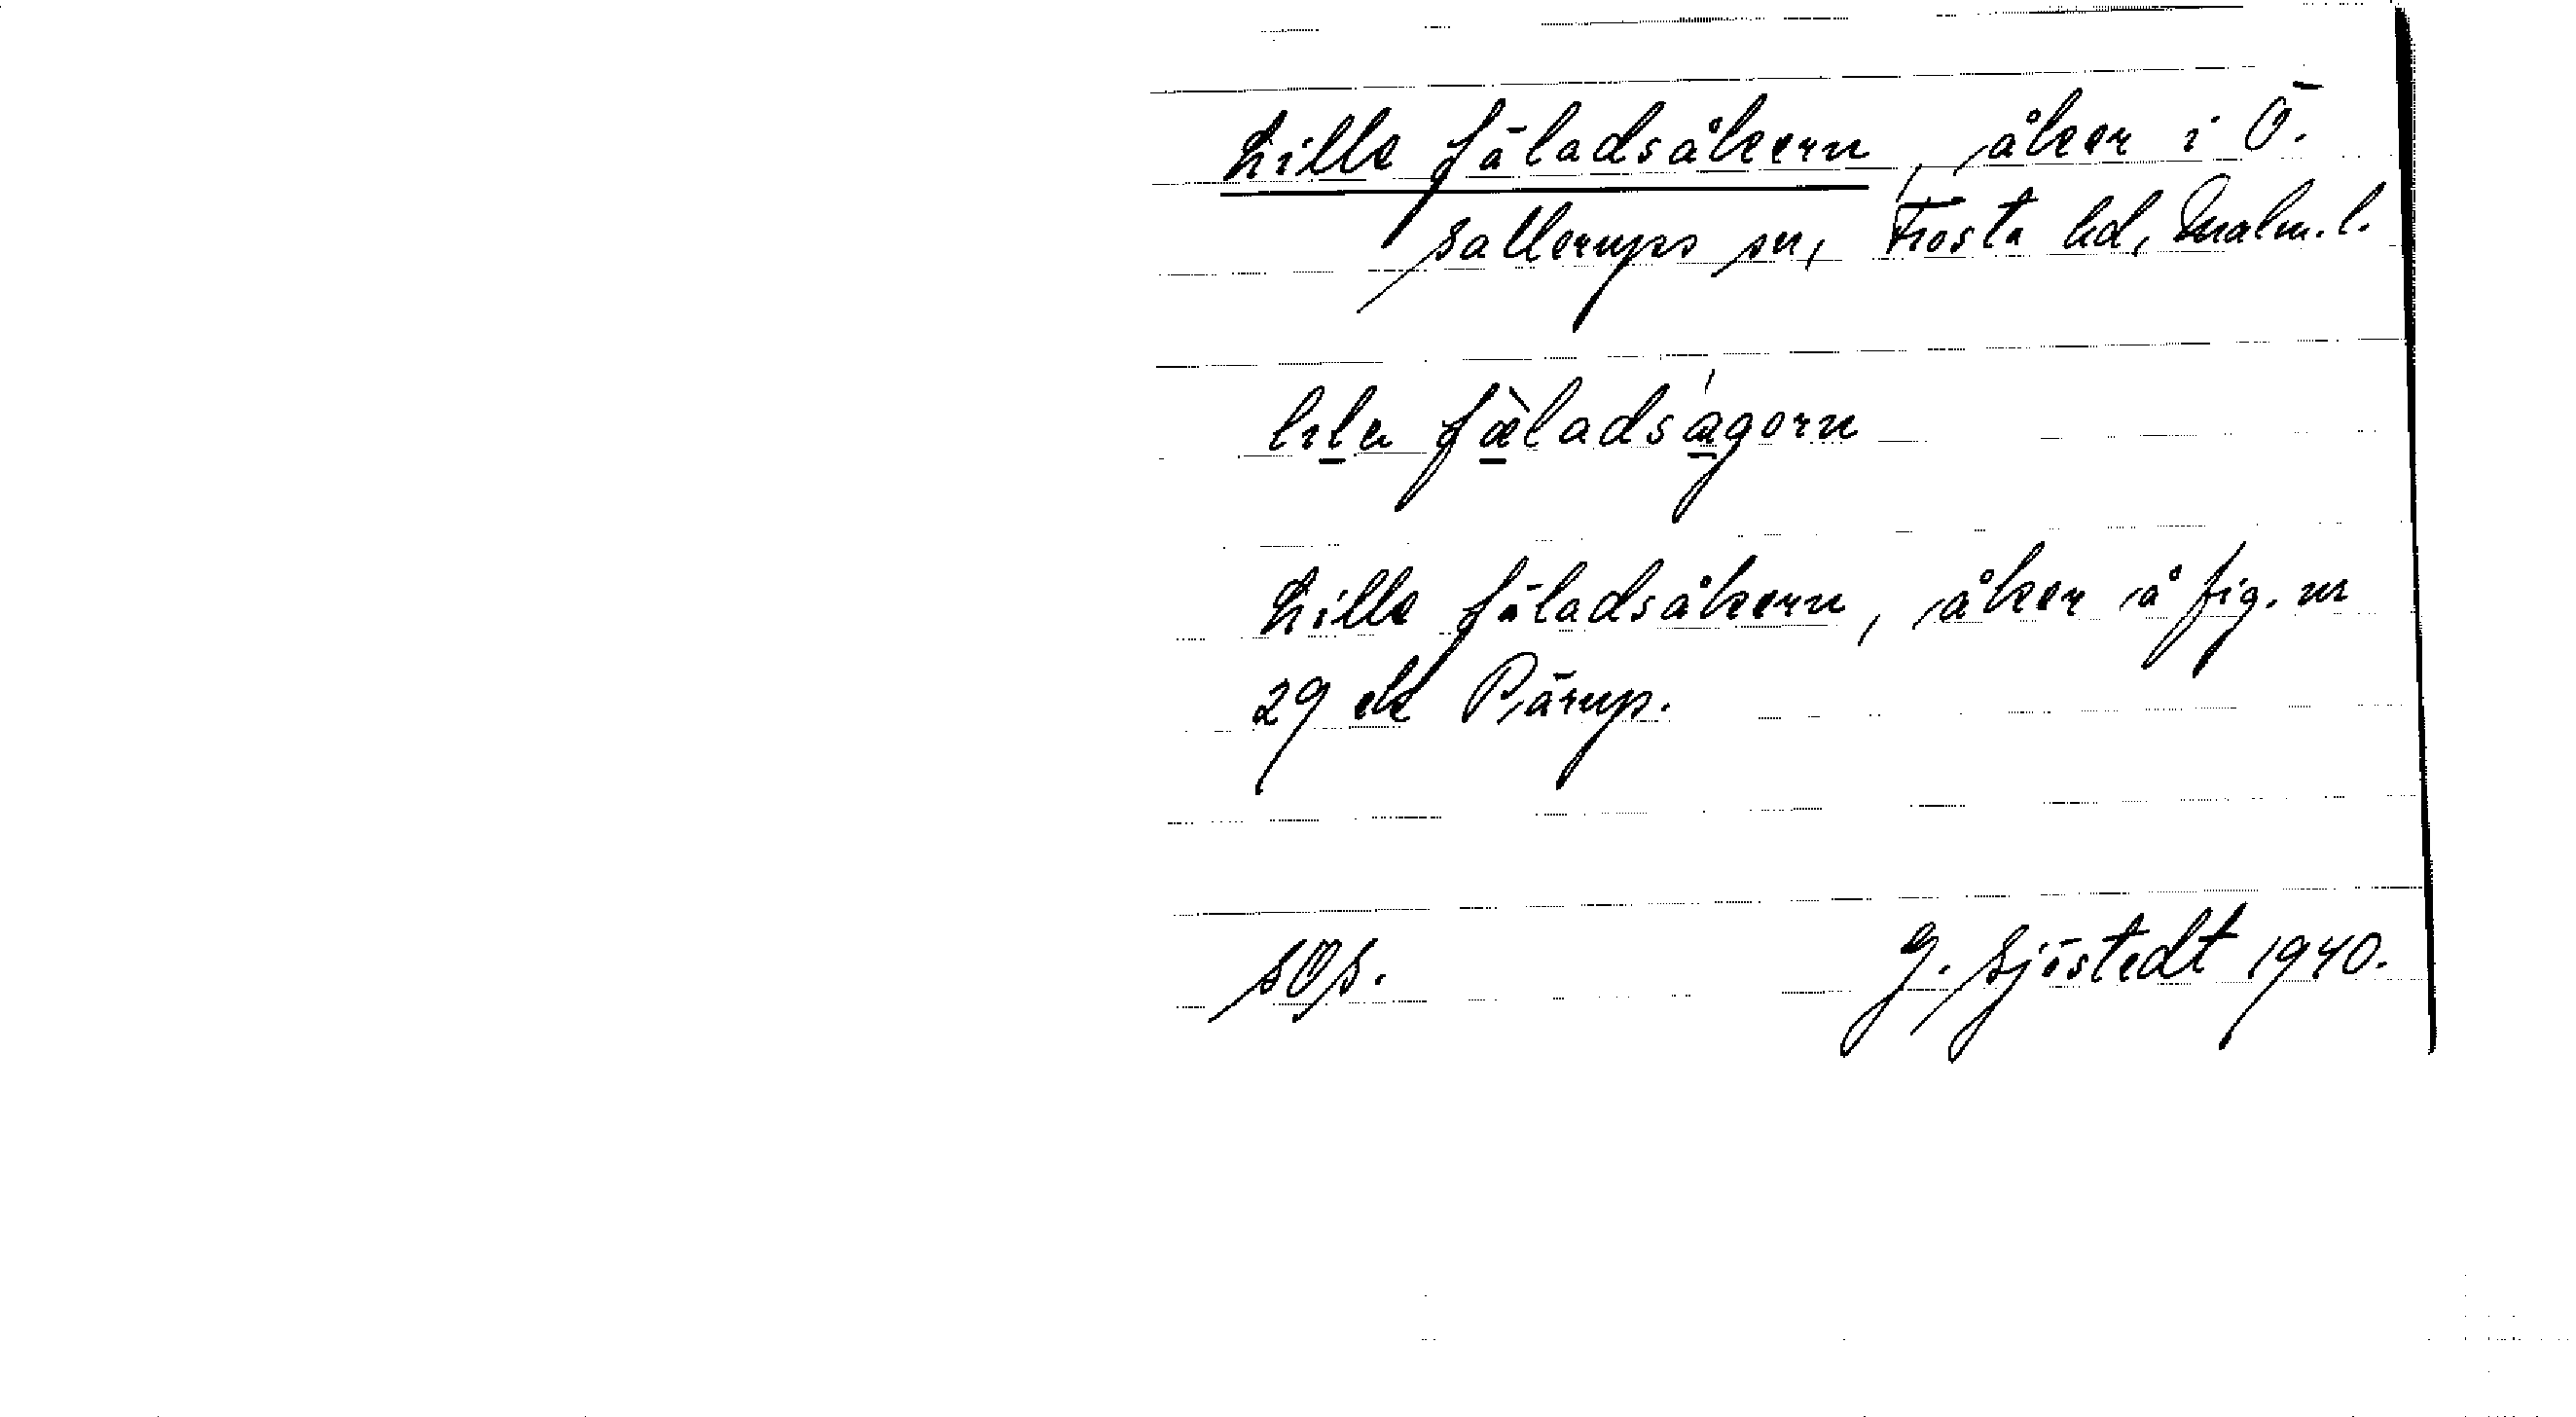 Lilla fäladsåkern, åker i Ö.
Sallerups sn, Frosta hd, Malm. l.
lila fæ̀ladságorn
Lilla fäladsåkern, åker å fig. nr
29 ek Pärup.
SOS.
G. Sjöstedt 1940.